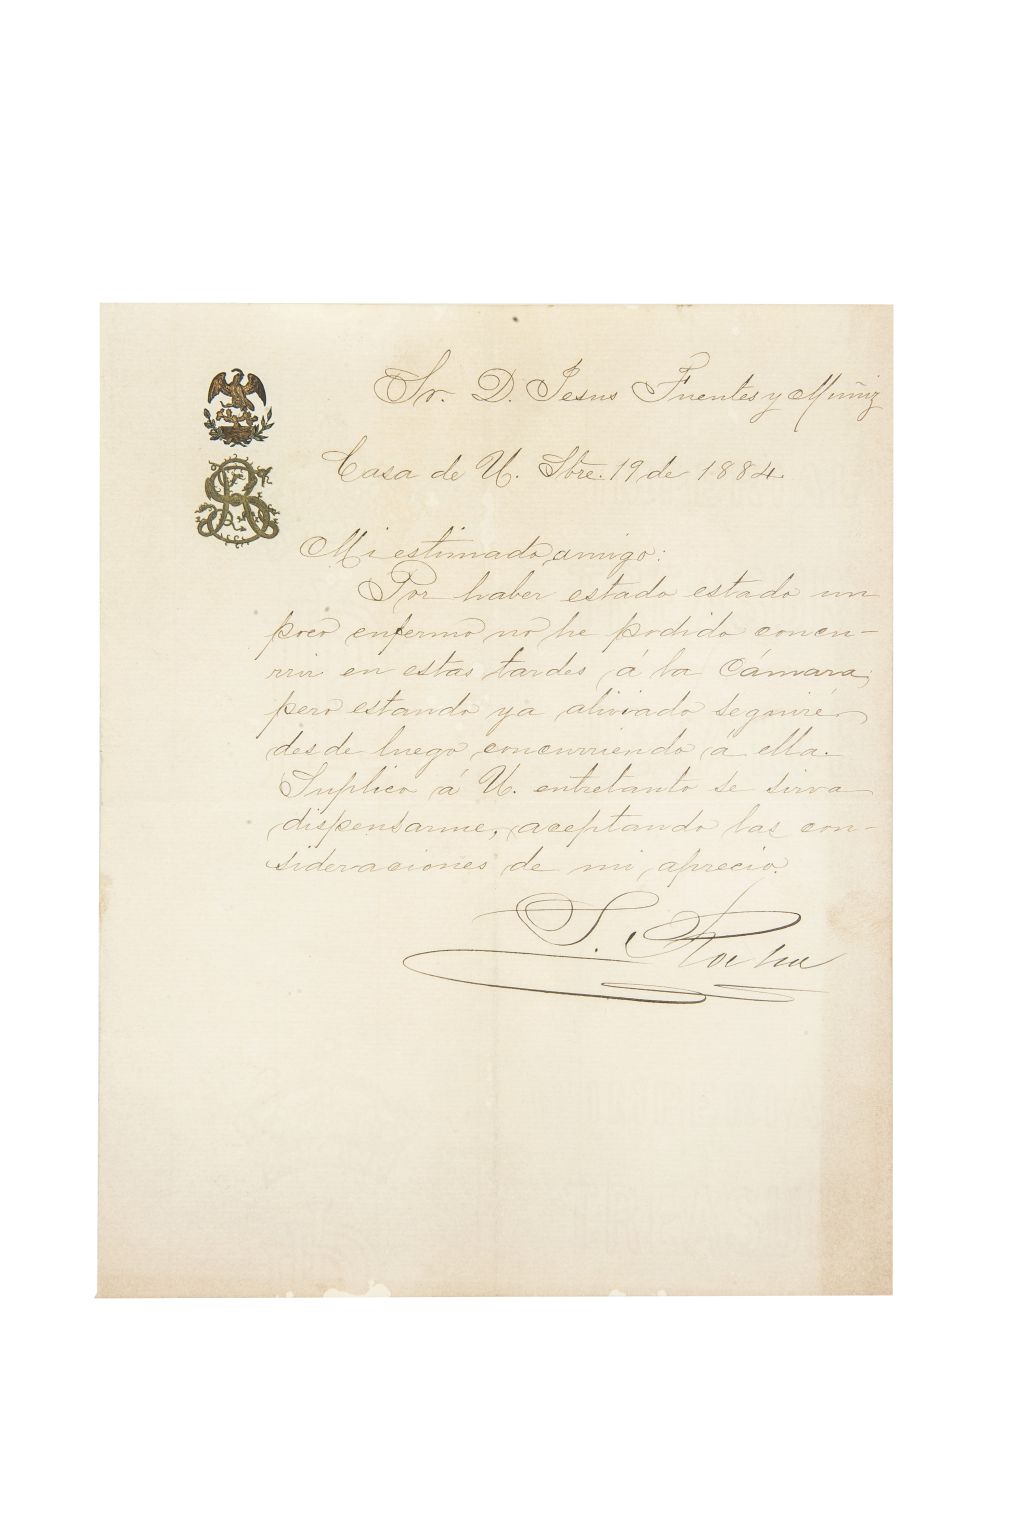 Sr. D. Jesus Fuentes y Muñiz
Casa de U. Sbre. 19 de 1884.
Mi estimado amigo:
Por haber estado estado un
poco enfermo no he podido concu-
rrir en estas tardes á la Cámara;
pero estando ya aliviado seguiré
desde luego concurriendo á ella.
Suplico á U. entretanto se sirva
dispensarme, aceptando las con-
sideraciones de mi aprecio.
S. Rocha